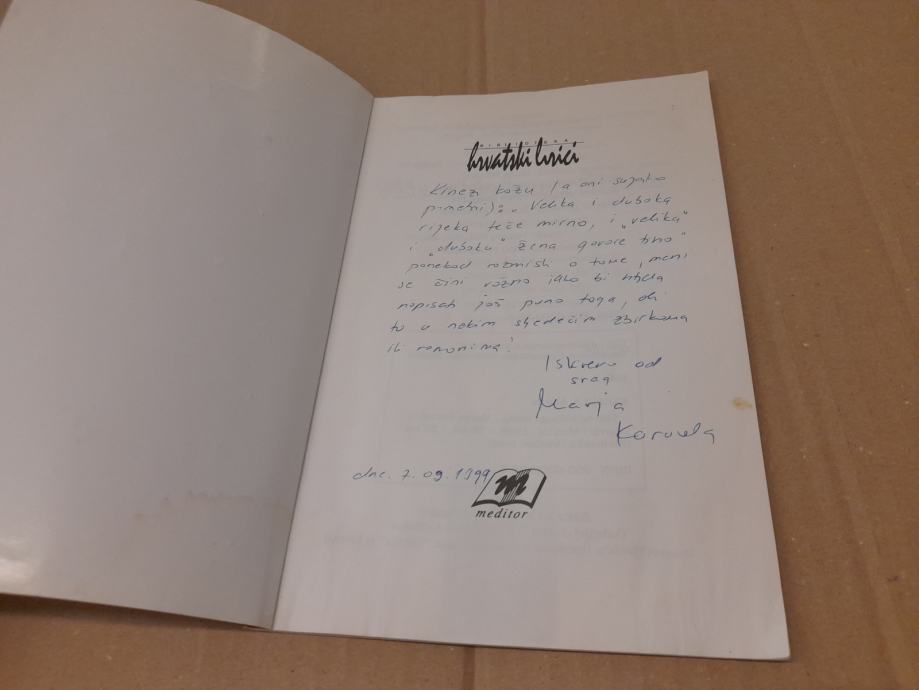 BIBLIOTEKA
hrvatski lirici
Kinezi kažu (a oni su jako
pametni): „Velika i duboka
rijeka teče mirno, i „velika"
i „duboka" žena govore tiho"
ponekad razmisli o tome, meni
se čini važno iako bi htjela
napisati još puno toga, ali
to u nekim sljedećim zbirkama
ili romanima!
Iskreno od
srca
Marija
dne. 7.09.1999
m
meditor